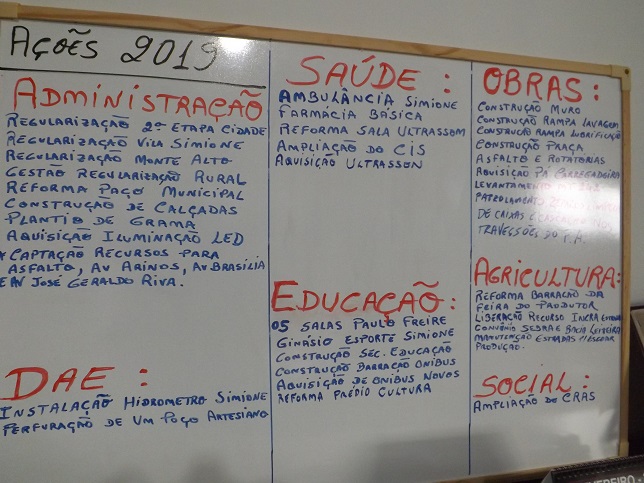 AÇÕES 2019
ADMINISTRAÇÃO
REGULARIZAÇÃO 2ª ETAPA CIDADE
REGULARIZAÇÃO VILA SIMIONE
REGULARIZAÇÃO MONTE ALTO
GESTÃO REGULARIZAÇÃO RURAL
REFORMA PAÇO MUNICIPAL
CONSTRUÇÃO DE CALÇADAS
PLANTIO DE GRAMA
AQUISIÇÃO ILUMINAÇÃO LED
* CAPTAÇÃO RECURSOS PARA
ASFALTO, AV ARINOS, AV BRASILIA
E AV JOSÉ GERALDO RIVA.
DAE :
INSTALAÇÃO HIDROMETRO SIMIONE
PERFURAÇÃO DE UM POÇO ARTESIANO
SAÚDE :
AMBULÂNCIA SIMIONE
FARMÁCIA BÁSICA
REFORMA SALA ULTRASSOM
AMPLIAÇÃO DO CIS
AQUISIÇÃO ULTRASSON
EDUCAÇÃO :
05 SALAS PAULO FREIRE
GINÁSIO ESPORTE SIMIONE
CONSTRUÇÃO SEC. EDUCAÇÃO
CONSTRUÇÃO BARRAÇÃO ONIBUS
AQUISIÇÃO DE ONIBUS NOVOS
REFORMA PRÉDIO CULTURA
OBRAS :
CONSTRUÇÃO MURO
CONSTRUÇÃO RAMPA LAVAGEM
CONSTRUÇÃO RAMPA LUBRIFICAÇÃO
CONSTRUÇÃO PRAÇA
ASFALTO E ROTATORIAS
AQUISIÇÃO PÁ CARREGADEIRA
LEVANTAMENTO
PATROLAMENTO
DE CAIXAS E
TRAVESSÕES DO P.A.
AGRICULTURA :
REFORMA BARRAÇÃO DA
FEIRA DO PRODUTOR
LIBERAÇÃO RECURSO INCRA
CONVÊNIO SEBRAE BACIA LEITEIRA
MANUTENÇÃO ESTRADAS P/ESCOAR
PRODUÇÃO.
SOCIAL :
AMPLIAÇÃO DO CRAS